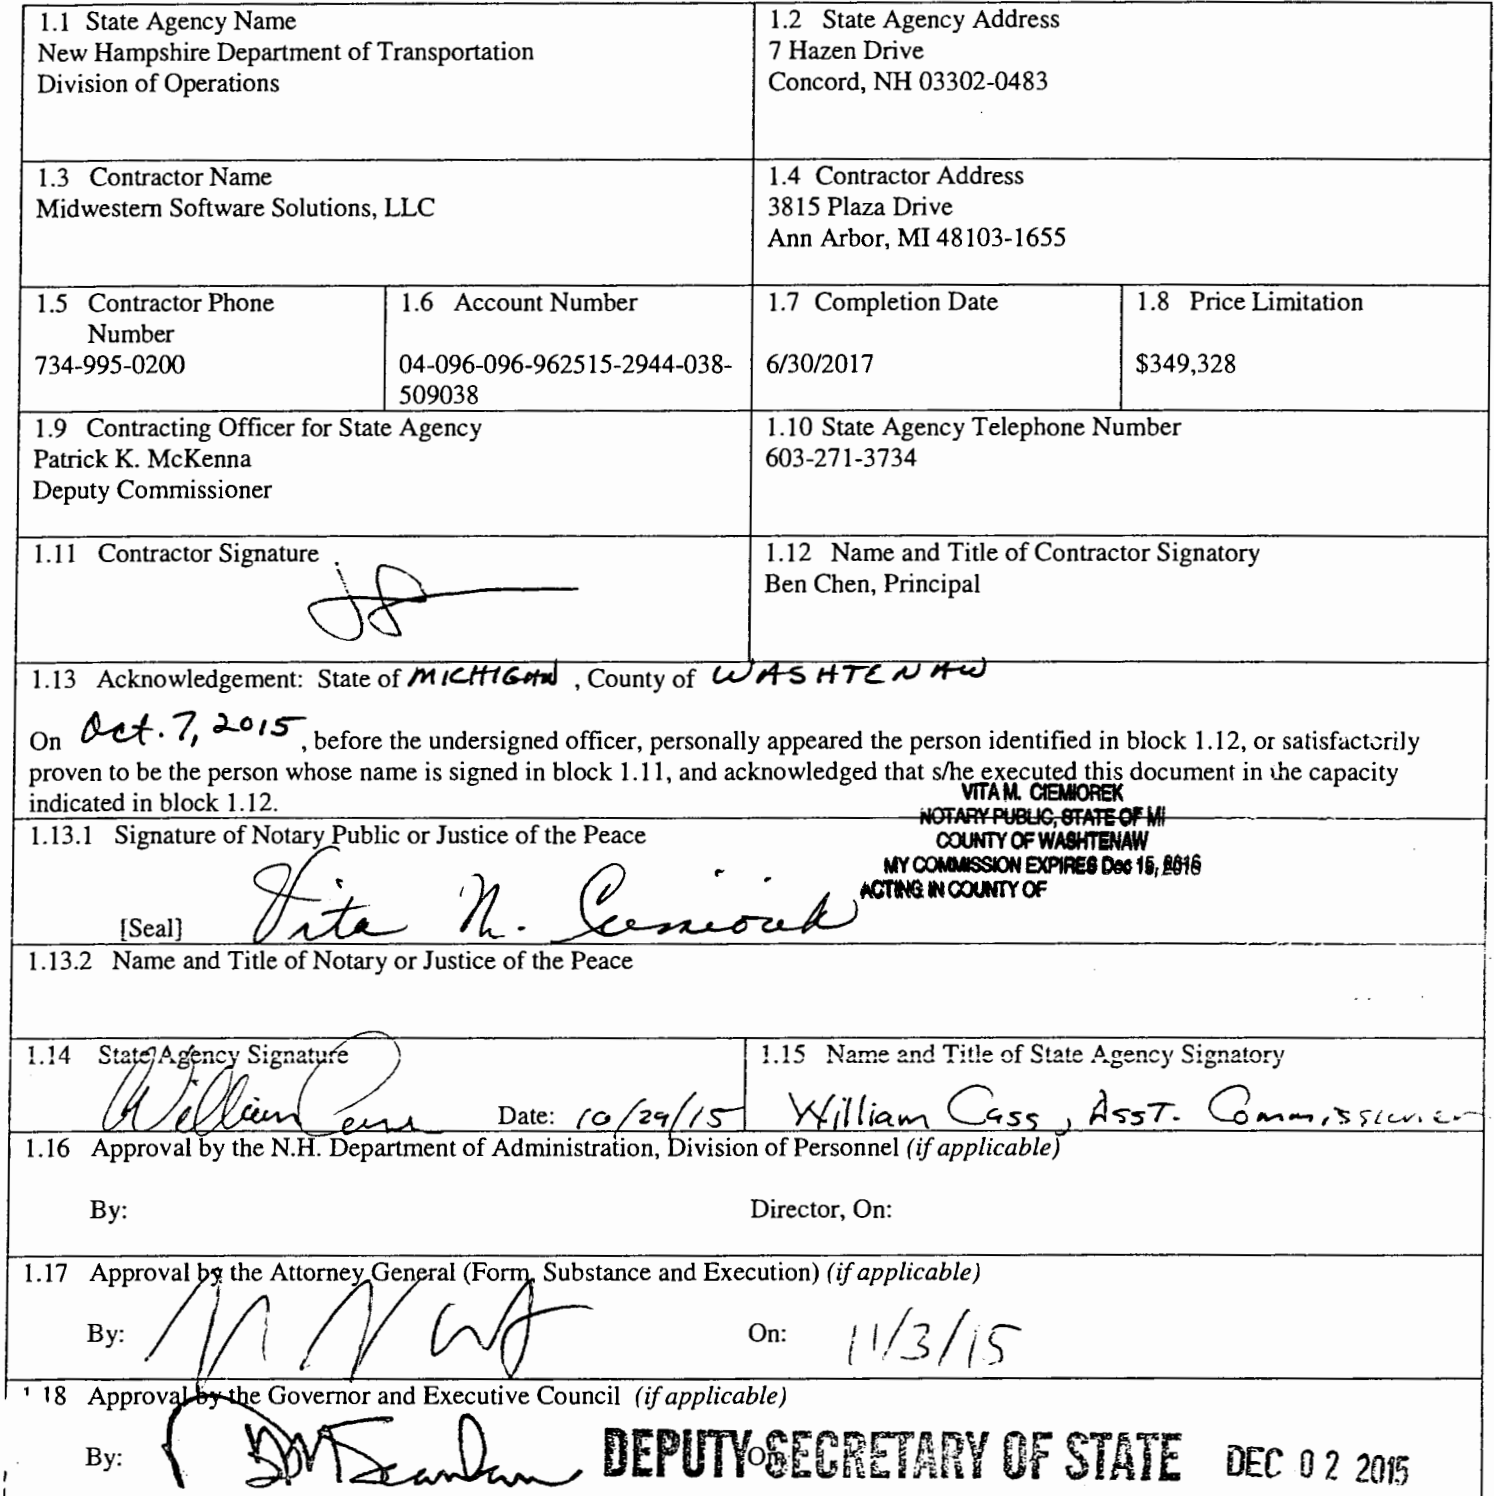 1.1 State Agency Name
New Hampshire Department of Transportation
Division of Operations
1.2 State Agency Address
7 Hazen Drive
Concord, NH 03302-0483
1.3 Contractor Name
Midwestern Software Solutions, LLC
1.4 Contractor Address
3815 Plaza Drive
Ann Arbor, MI 48103-1655
1.5 Contractor Phone
Number
734-995-0200
1.6 Account Number
04-096-096-962515-2944-038-
509038
1.7 Completion Date
6/30/2017
1.8 Price Limitation
$349,328
1.9 Contracting Officer for State Agency
Patrick K. McKenna
Deputy Commissioner
1.10 State Agency Telephone Number
603-271-3734
1.11 Contractor Signature
1.12 Name and Title of Contractor Signatory
Ben Chen, Principal
1.13 Acknowledgement: State of MICHIGAN, County of WASHTENAW
On Oct. 7, 2015, before the undersigned officer, personally appeared the person identified in block 1.12, or satisfactorily
proven to be the person whose name is signed in block 1.11, and acknowledged that s/he executed this document in the capacity
indicated in block 1.12.
VITA M. CIEMIOREK
NOTARY PUBLIC, STATE OF MI
COUNTY OF WASHTENAW
MY COMMISSION EXPIRES Dec 15, 2016
ACTING IN COUNTY OF
1.13.1 Signature of Notary Public or Justice of the Peace
[Seal] Vita M. Ciemiorek
1.13.2 Name and Title of Notary or Justice of the Peace
1.14 State Agency Signature
William Cass Date: 10/29/15
1.15 Name and Title of State Agency Signatory
William Cass, Asst. Commissioner
1.16 Approval by the N.H. Department of Administration, Division of Personnel (if applicable)
By: Director, On:
1.17 Approval by the Attorney General (Form, Substance and Execution) (if applicable)
By: On: 11/3/15
18 Approval by the Governor and Executive Council (if applicable)
By: DEPUTY SECRETARY OF STATE DEC 02 2015